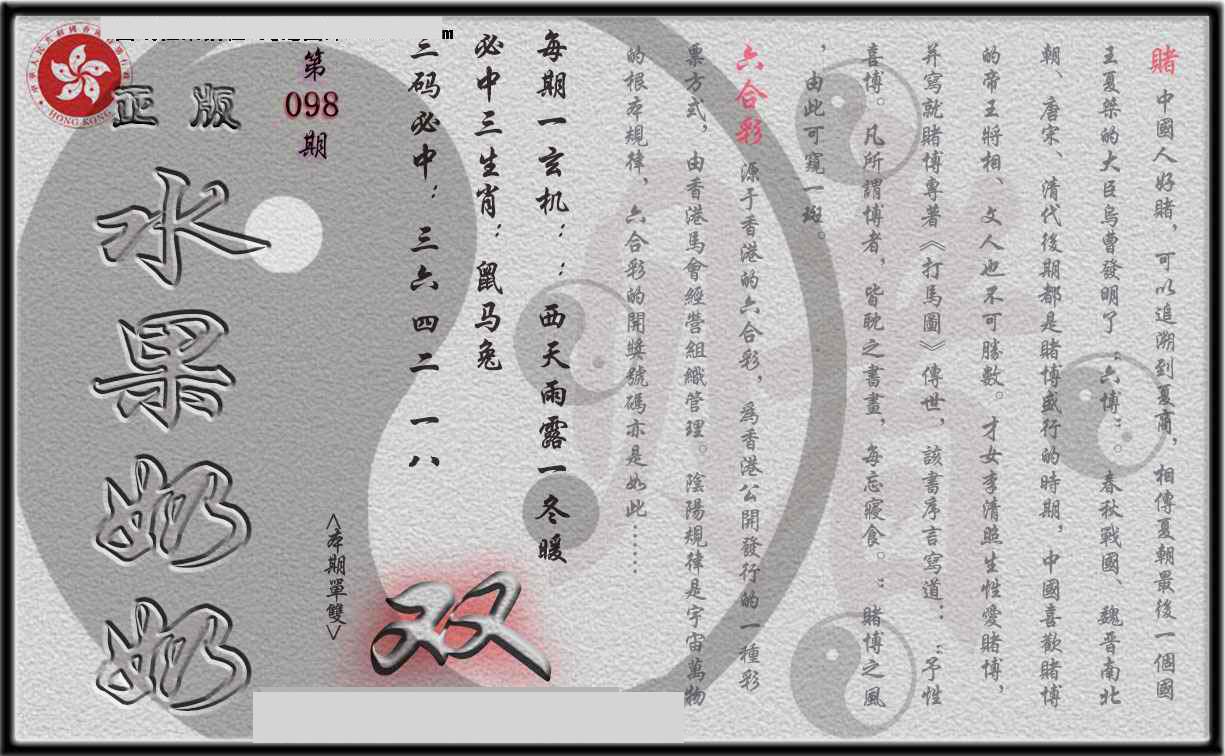 正版
水果奶奶
第
098
期
每期一玄机：：西天雨露一冬暖
必中三生肖：鼠马兔
三码必中：三六四二一八
<本期單雙>
双
賭 中國人好賭，可以追溯到夏商，相傳夏朝最後一個國
王夏桀的大臣烏曹發明了“六博”。春秋戰國、魏晋南北
朝、唐宋、清代後期都是賭博盛行的時期，中國喜歡賭博
的帝王將相、文人也不可勝數。才女李清照生性愛賭博，
并寫就賭博專著《打馬圖》傳世，該書序言寫道：“予性
喜博。凡所謂博者，皆耽之晝夜，每忘寢食。”賭博之風
，由此可窺一斑。
六合彩 源于香港的六合彩，為香港公開發行的一種彩
票方式，由香港馬會經營組織管理。陰陽規律是宇宙萬物
的根本規律、六合彩的開獎號碼亦是如此……
HONG KONG